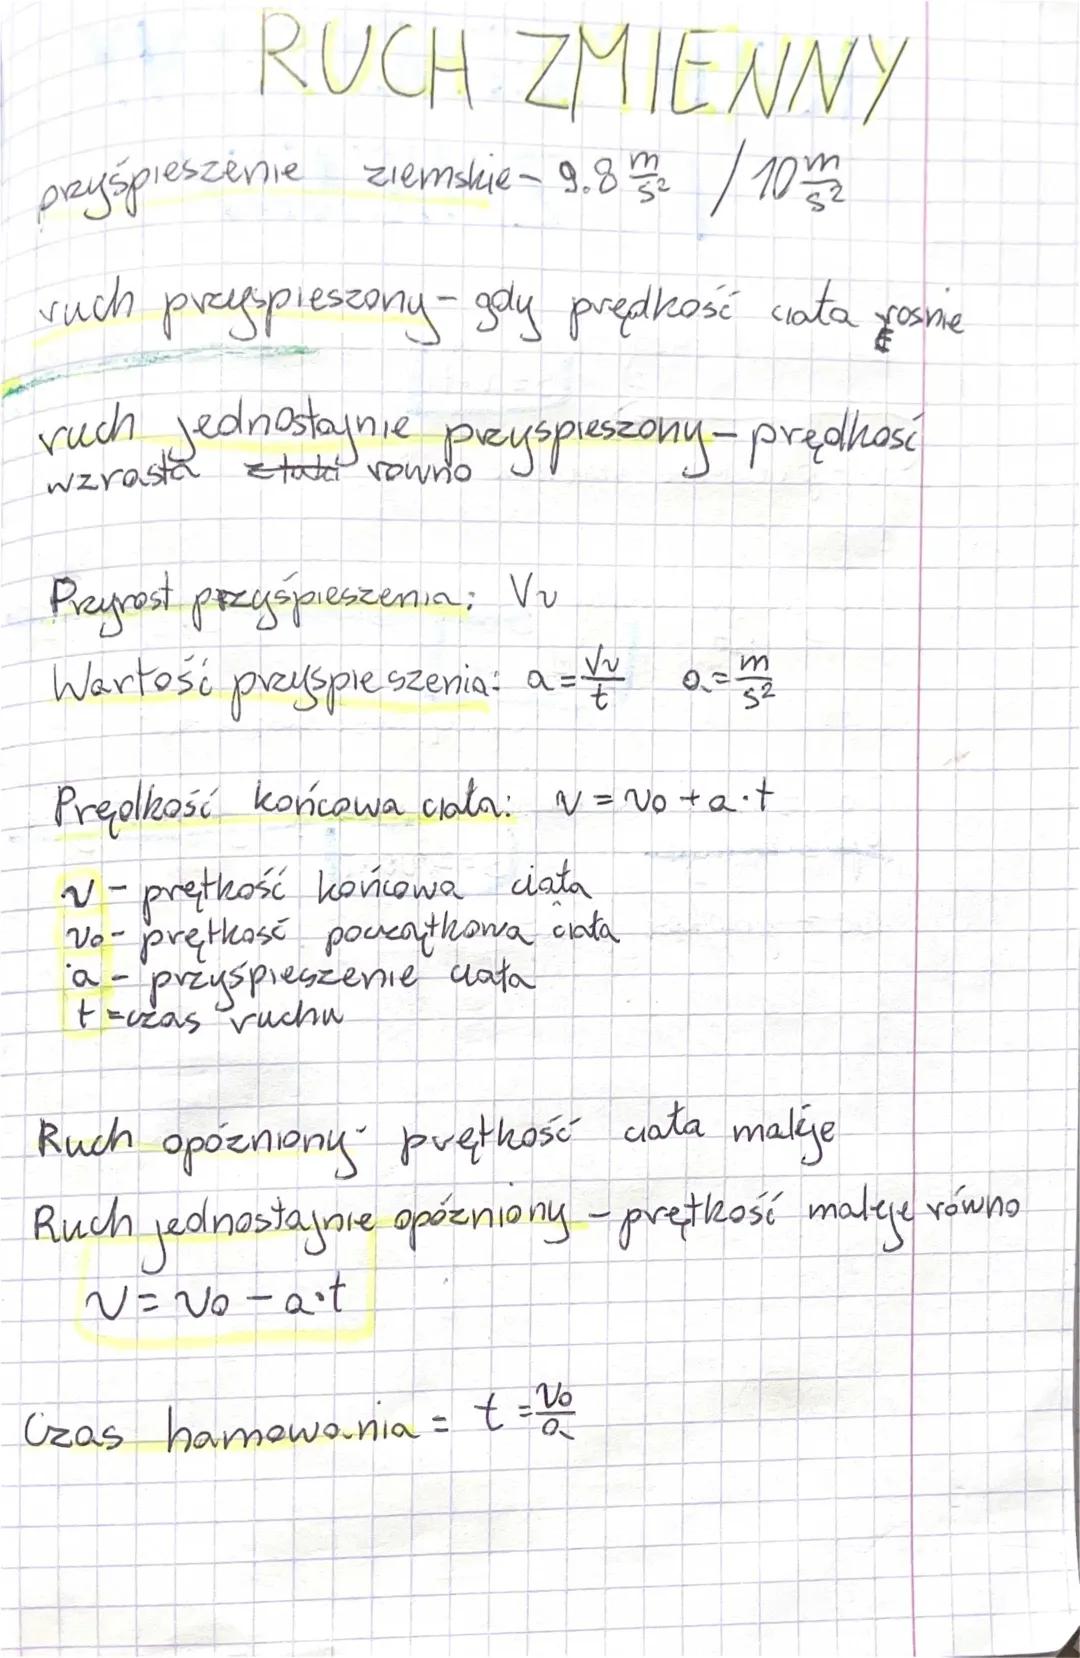 RUCH ZMIENNY
przyśpieszenie ziemskie - 9.8 m/s² / 10 m/s²
ruch przyspieszony - gdy prędkość ciała rosnie
ruch jednostajnie przyspieszony - prędkość
wzrasta równo
Przyrost przyśpieszenia: Vv
Wartość przyspieszenia: a = Vv/t a = m/s²
Prędkość końcowa ciała: v = v₀ + a·t
v - prętkość końcowa ciała
v₀ - prętkość początkowa ciała
a - przyśpieszenie ciała
t = czas ruchu
Ruch opózniony - prętkość ciała maleje
Ruch jednostajnie opózniony - prętkość maleje równo
v = v₀ - a·t
Czas hamowania = t = v₀/a